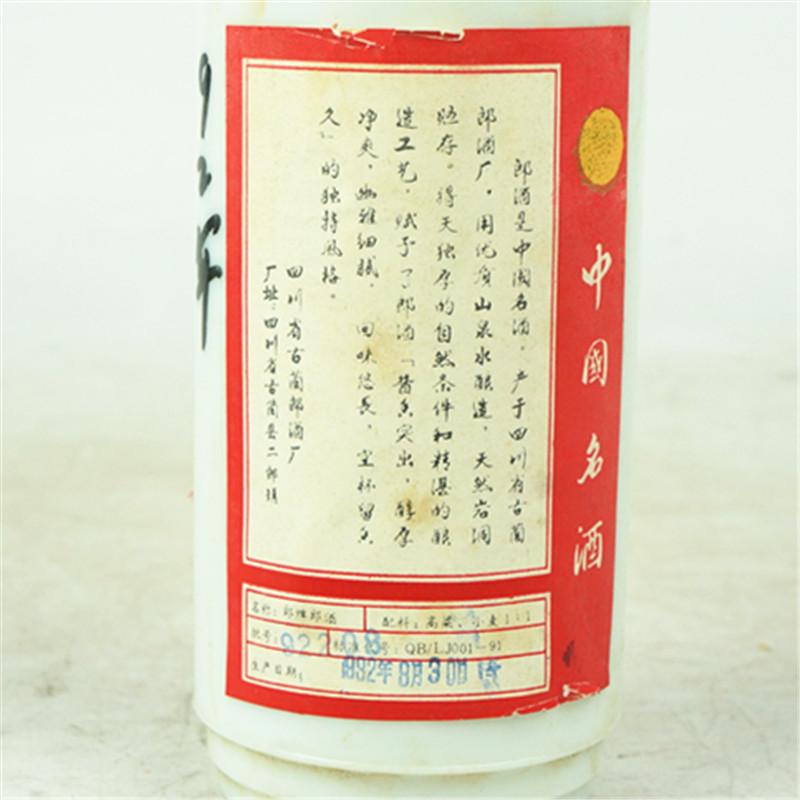 中國名酒
郎酒是中国名酒，产于四川省古蔺
郎酒厂，用优质山泉水酿造，天然岩洞
贮存。得天独厚的自然条件和精湛的酿
造工艺，赋予了郎酒「酱香突出，醇厚
净爽，幽雅细腻，回味悠長，空杯留香
久」的独特风格。
四川省古蔺郎酒厂
厂址：四川省古蔺县二郎镇
92年
名称：郎牌郎酒
配料：高粱、小麦1:1
批号：92208
标准代号：QB/LJ001-91
生产日期：1992年8月30日